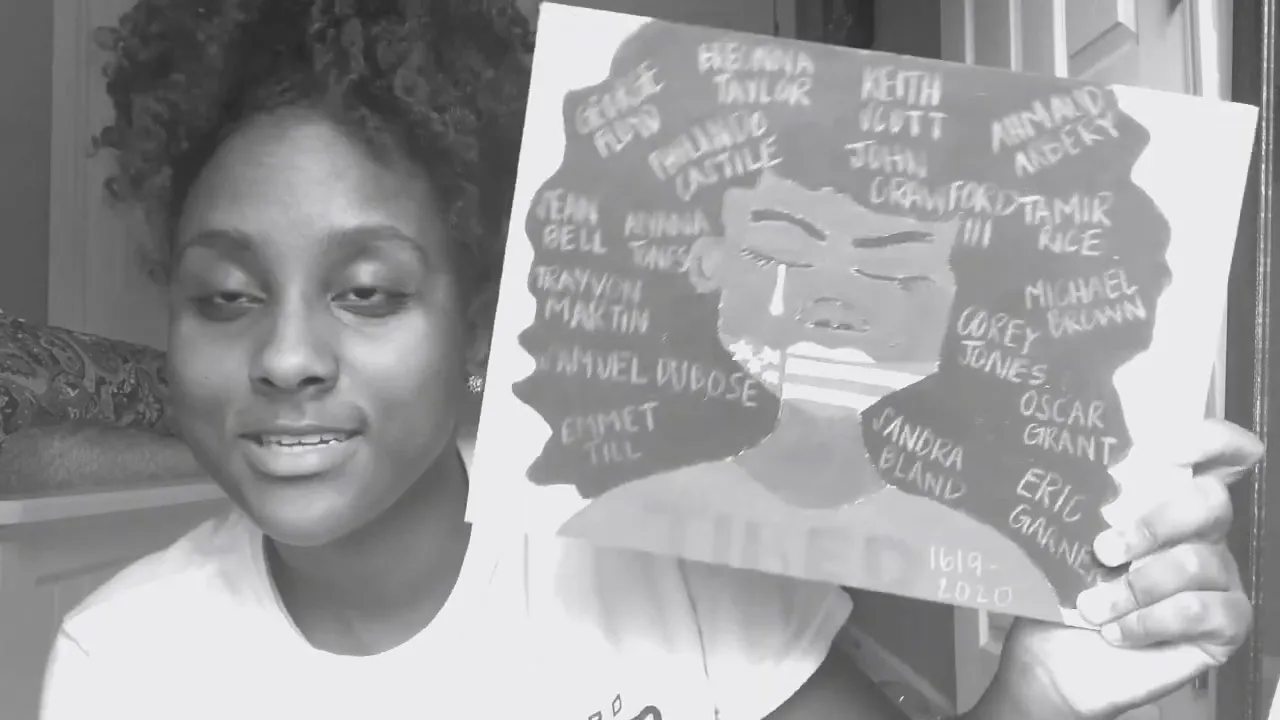 GEORGE
FLOYD
BREONNA
TAYLOR
PHILANDO
CASTILE
KEITH
SCOTT
JOHN
CRAWFORD
III
AHMAUD
ARBERY
SEAN
BELL
AIYANNA
JONES
TAMIR
RICE
TRAYVON
MARTIN
MICHAEL
BROWN
COREY
JONES
SAMUEL DUBOSE
OSCAR
GRANT
EMMET
TILL
SANDRA
BLAND
ERIC
GARNER
TIRED
1619-
2020